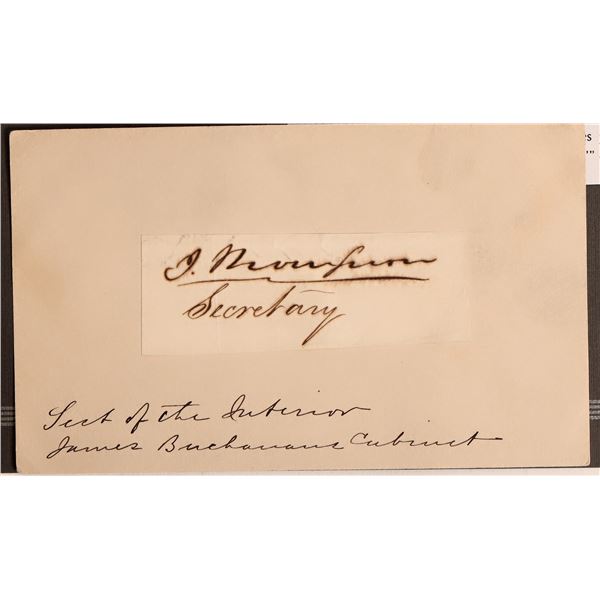 J. Thompson
Secretary
Sect of the Interior
James Buchanans Cabinet